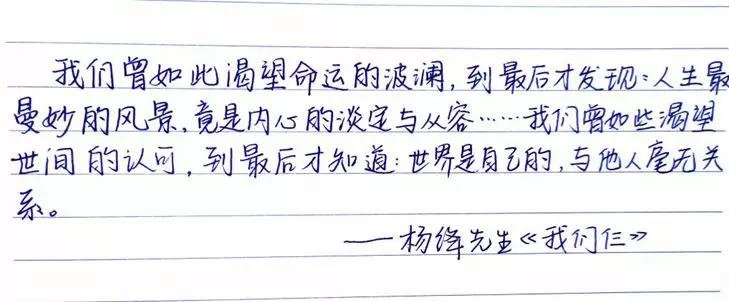 我们曾如此渴望命运的波澜,到最后才发现:人生最
曼妙的风景,竟是内心的淡定与从容……我们曾如些渴望
世间的认可,到最后才知道:世界是自己的,与他人毫无关
系。
——杨绛先生《我们仨》